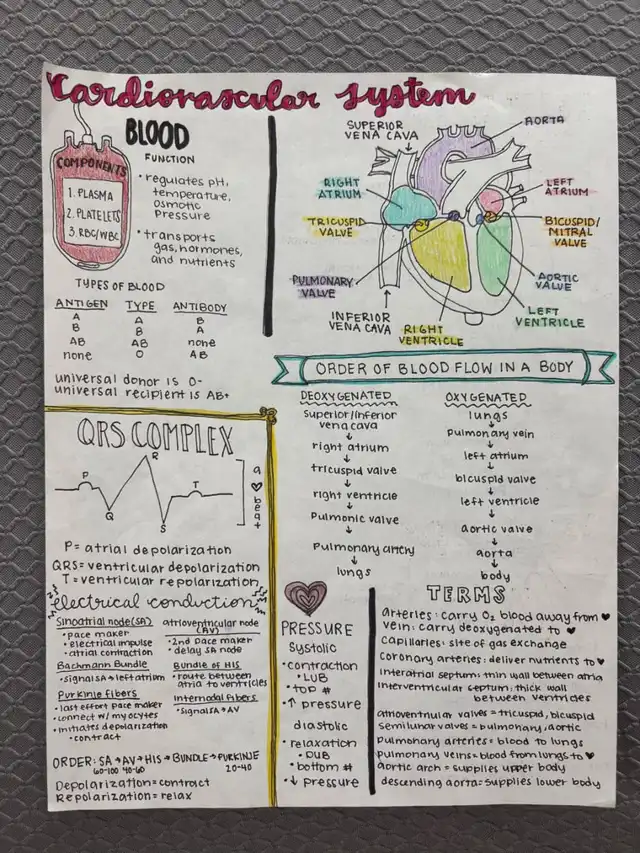 Cardiovascular System
BLOOD
COMPONENTS
1. PLASMA
2. PLATELETS
3. RBC/WBC
FUNCTION
• regulates pH,
temperature,
osmotic
pressure
• transports
gas, hormones,
and nutrients
TYPES OF BLOOD
ANTIGEN TYPE ANTIBODY
A A B
B B A
AB AB none
none O AB
universal donor is O-
universal recipient is AB+
SUPERIOR
VENA CAVA
AORTA
RIGHT
ATRIUM
LEFT
ATRIUM
TRICUSPID
VALVE
BICUSPID/
MITRAL
VALVE
PULMONARY
VALVE
AORTIC
VALVE
INFERIOR
VENA CAVA
RIGHT
VENTRICLE
LEFT
VENTRICLE
ORDER OF BLOOD FLOW IN A BODY
DEOXYGENATED
Superior/inferior
vena cava
↓
right atrium
↓
tricuspid valve
↓
right ventricle
↓
Pulmonic valve
↓
Pulmonary artery
↓
lungs
OXYGENATED
lungs
↓
pulmonary vein
↓
left atrium
↓
bicuspid valve
↓
left ventricle
↓
aortic valve
↓
aorta
↓
body
QRS COMPLEX
P
R
T
Q
S
a ♥ beat
P= atrial depolarization
QRS= ventricular depolarization
T= ventricular repolarization
electrical conduction
Sinoatrial node(SA)
• pace maker
• electrical impulse
• atrial contraction
atrioventricular node
(AV)
• 2nd pace maker
• delay SA node
Bachmann Bundle
• signal SA→left atrium
Bundle of HIS
• route between
atria to ventricles
Purkinje fibers
• last effort pace maker
• connect w/ myocytes
• initiates depolarization
• contract
Internodal Fibers
• signal SA→AV
ORDER: SA→AV→HIS→BUNDLE→PURKINJE
60-100 40-60 20-40
Depolarization=contract
Repolarization=relax
PRESSURE
Systolic
• contraction
• LUB
• top #
• ↑ pressure
diastolic
• relaxation
• DUB
• bottom #
• ↓ pressure
TERMS
arteries: carry O₂ blood away from ♥
vein: carry deoxygenated to ♥
capillaries: site of gas exchange
coronary arteries: deliver nutrients to ♥
interatrial septum: thin wall between atria
interventricular septum: thick wall
between ventricles
atrioventricular valves = tricuspid, bicuspid
semilunar valves = pulmonary, aortic
pulmonary arteries= blood to lungs
pulmonary veins= blood from lungs to ♥
aortic arch = supplies upper body
descending aorta=supplies lower body